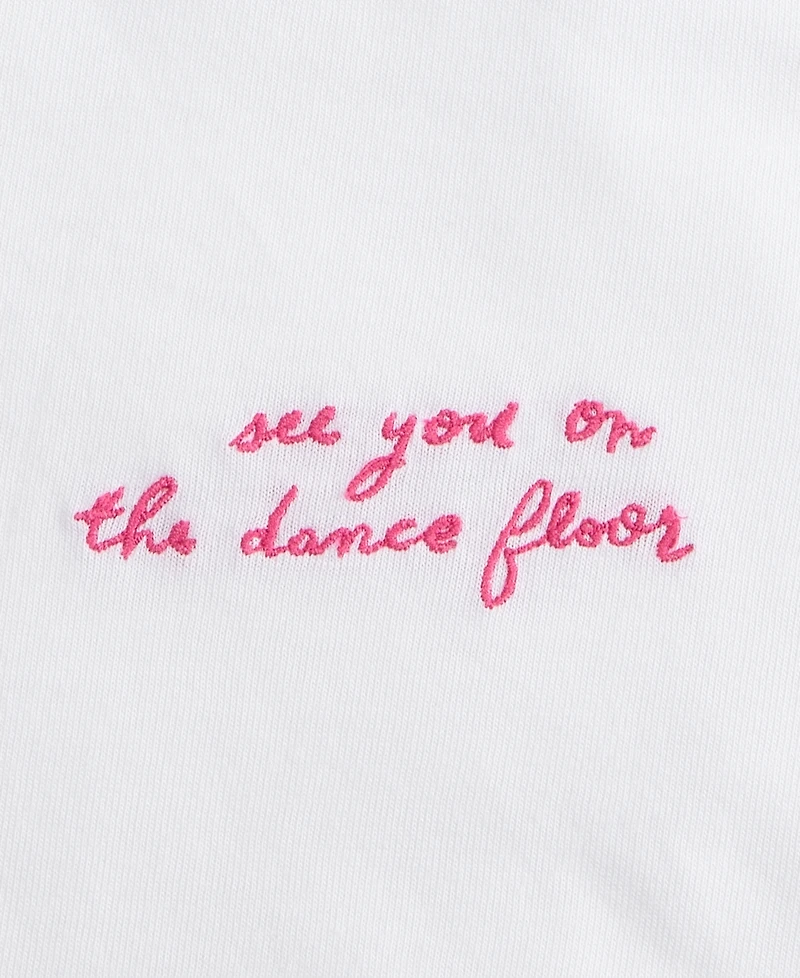 see you on
the dance floor